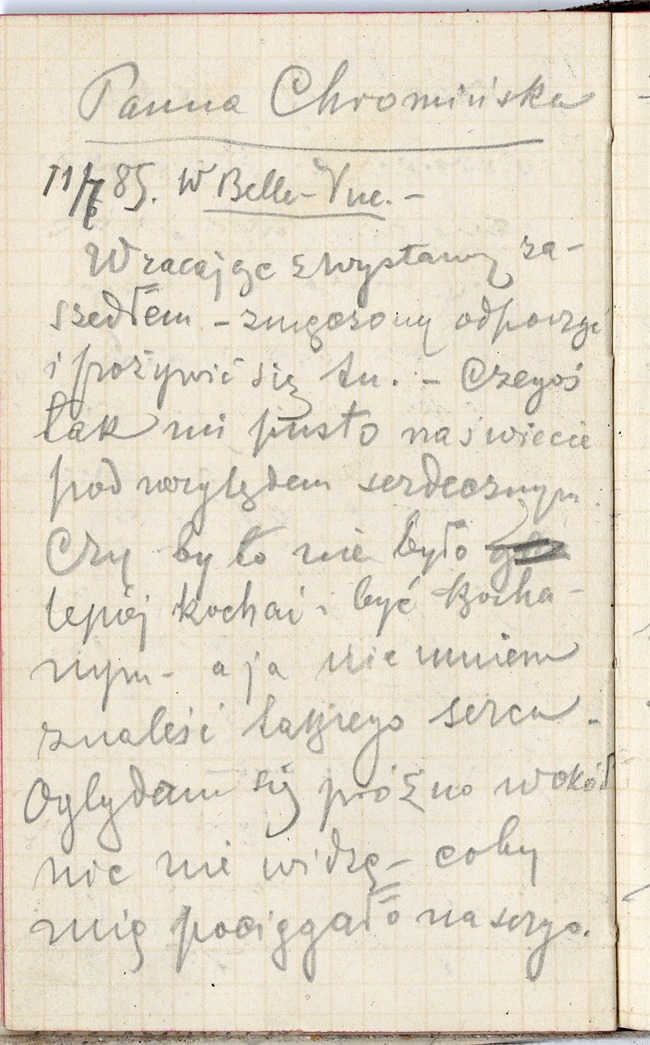 Panna Chromińska
11/6 85. W Belle-Vue. -
Wracając z wystawy za-
szedłem - zmęczony odpocząć
i pożywić się tu. - Czegoś
tak mi pusto na świecie
pod względem serdecznym
Czy by to nie było
lepiéj kochać i być kocha-
nym - a ja nie umiem
znaleść takiego serca -
Oglądam się próżno wokół
nic nie widzę - coby
mię pociągało na seryo.